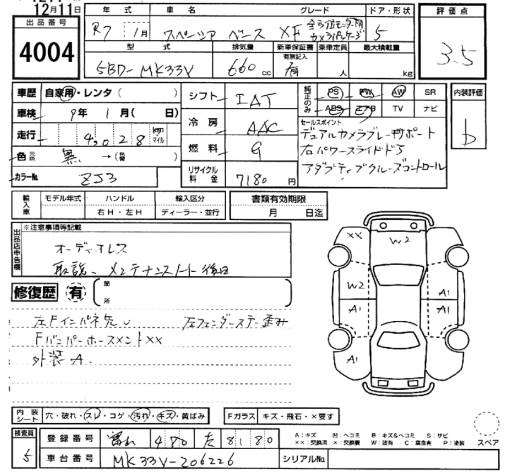 12月11日
出品番号
4004
年式 車名 グレード ドア・形状
R7 1月 スペーシア ベース XF 全方位モニター用カメラパッケージ 5
型式 排気量 新車保証書 乗車定員 最大積載量
有無記入
5BD-MK33V 660cc 有 人 kg
評価点
3.5
車歴 自家用・レンタ( )
車検 9年 1月 ( 日)
走行 4,028 km マイル
色 黒 →( 番)
カラーNo. ZJ3
シフト IAT
冷房 AAC
燃料 G
リサイクル料金 7180円
純正のみ PS PW AW SR
ABS エアB TV ナビ
セールスポイント
デュアルカメラブレーキサポート
右パワースライドドア
アダプティブクルーズコントロール
内装評価
b
輸入車 モデル年式 ハンドル 輸入区分
右H・左H ディーラー・並行
書類有効期限
月 日迄
出品店申告欄
※注意事項等記載
オーディオレス
取説、メンテナンスノート後日
修復歴 有 箇所
左Fインパネ先 左フェンダーステー歪み
FバンパーホースメントXX
外装A
XX W2
W2 A1
A1 A1
A1
内装シート 穴・破れ・スレ・コゲ・汚れ・キズ・黄ばみ
Fガラス キズ・飛石・×要す
検査員
5
登録番号 480 た 8180
車台番号 MK33V-206226
シリアルNo.
A:キズ U:ヘコミ B:キズ&ヘコミ S:サビ
××:交換済 ×:要交換 W:波有 C:腐食有 P:塗装
スペア